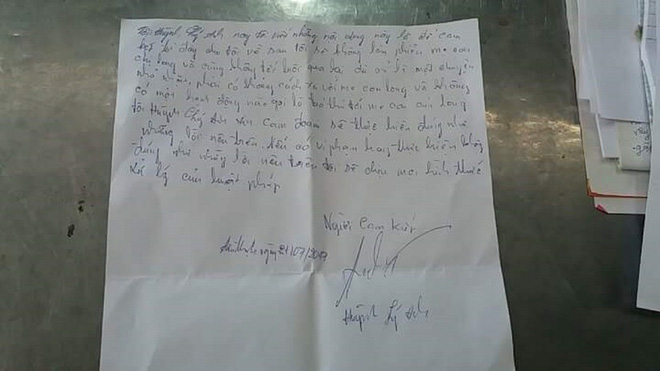 Tôi Huỳnh Lý Anh nay tôi viết những nội dung này là để cam
kết kể từ đây cho tới về sau tôi sẽ không làm phiền mẹ con
chị Long và cũng không tới lui qua lại dù chỉ là một chuyện
nhỏ nhất, phải có khoảng cách xa với mẹ con Long và không
có một hành động nào gọi là thù tới mẹ con của Long
tôi Huỳnh Lý Anh xin cam đoan sẽ thực hiện đúng như
những lời nêu trên, nếu có vi phạm hay thực hiện không
đúng như những lời nêu trên tôi sẽ chịu mọi hình thức
xử lý của luật pháp
Người Cam Kết
ngày 21/07/2017
Huỳnh Lý Anh